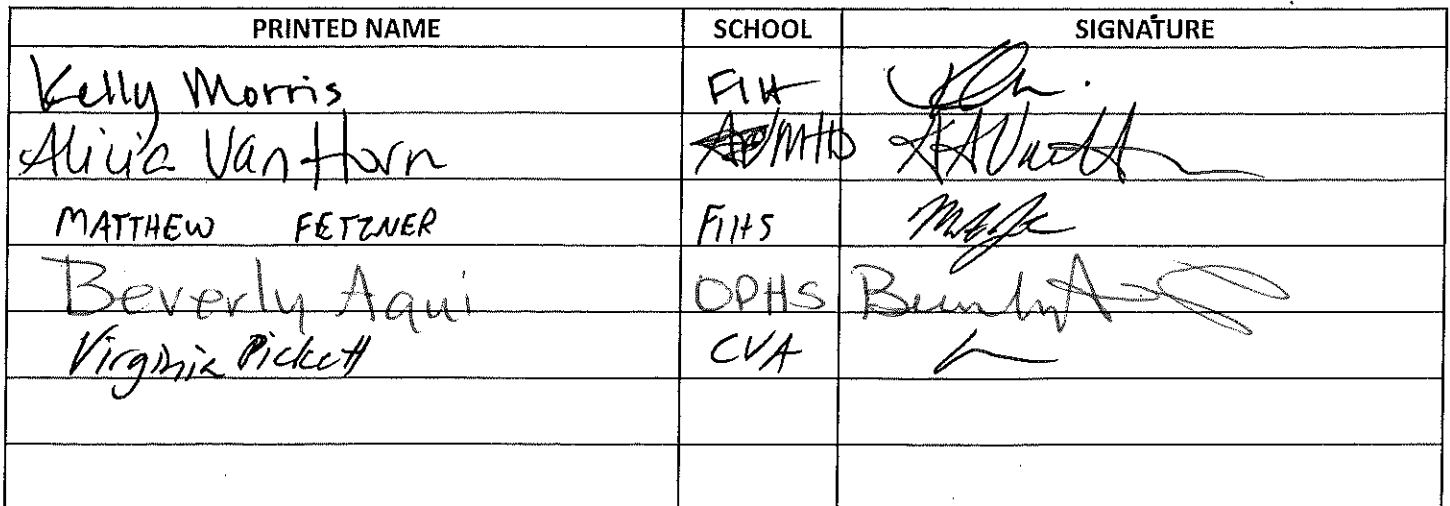 PRINTED NAME SCHOOL SIGNATURE
Kelly Morris FIH
Alicia Van Horn
MATTHEW FETZNER FIHS
Beverly Aqui OPHS
Virginia Pickett CVA